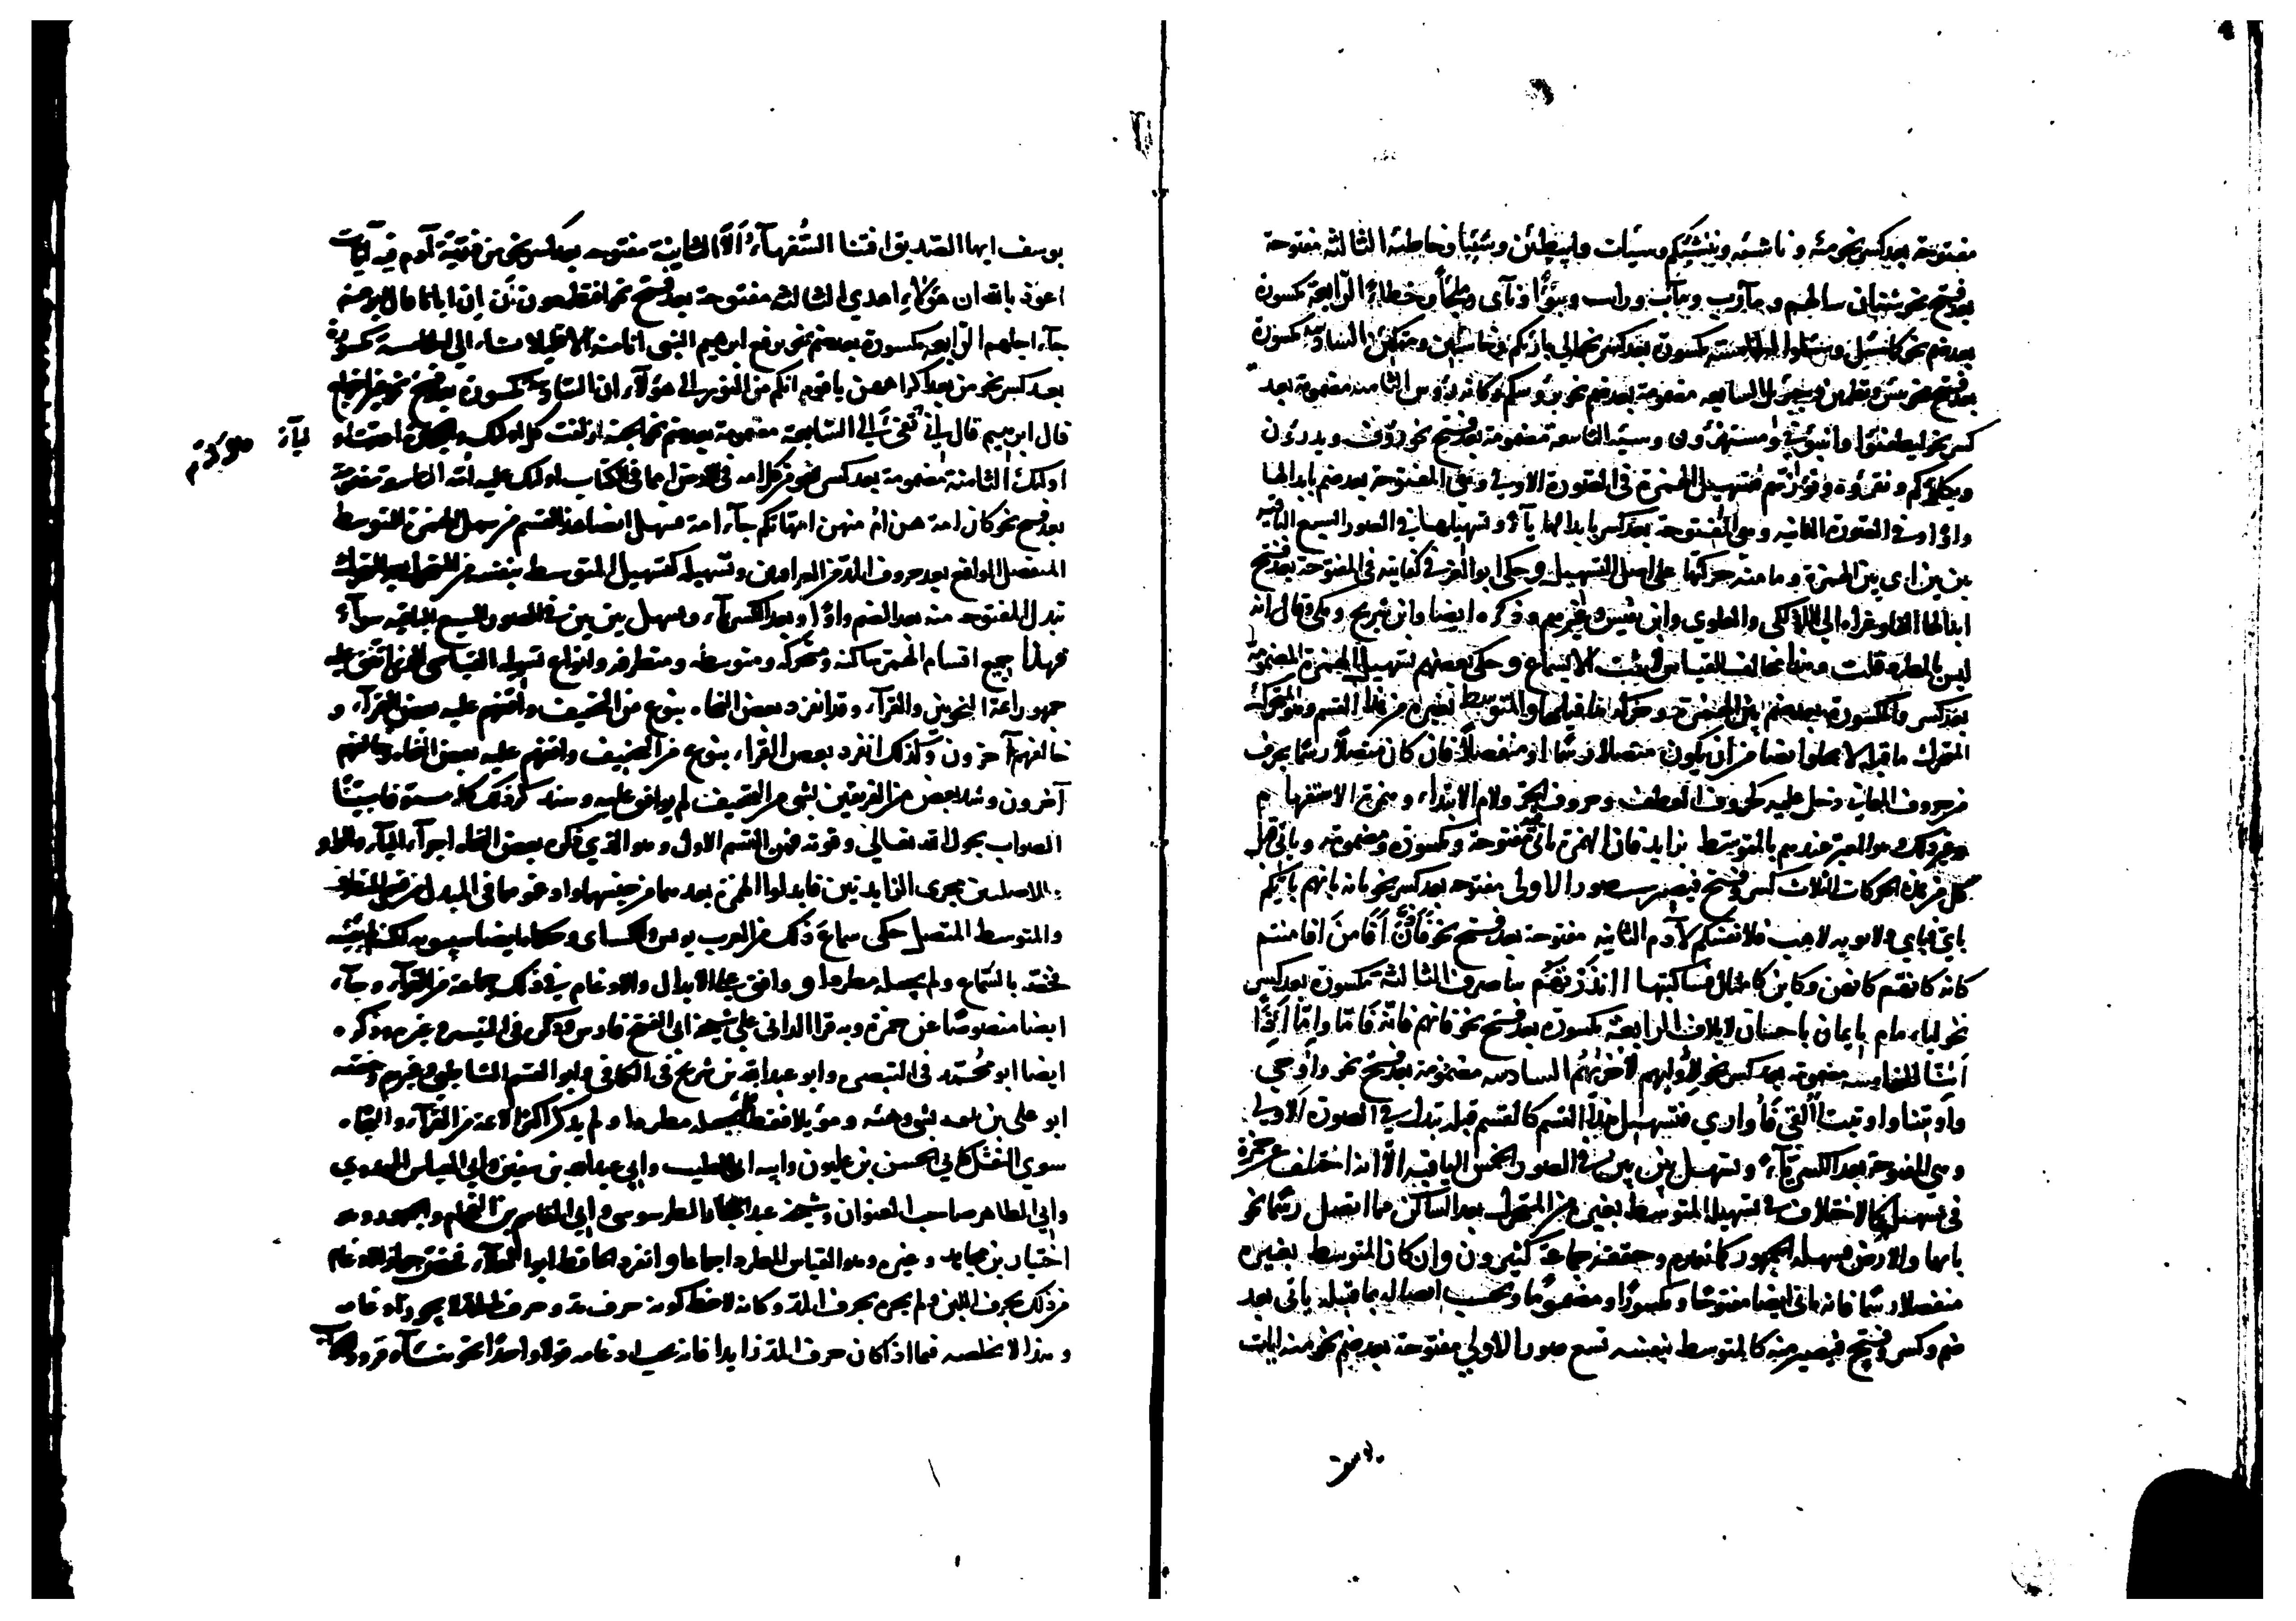 مفتوحة بعد كسر نحو مئه و ناشئه وننشئكم وسيات وليبطئن وشيئا وخاطئه الثالثه مفتوحة
بعد فتح نحو شنئان سالهم و مآرب ومآب وراىت وتبوؤا ونآى وملجأ وخطاء الرابعة مكسورة
بعد ضم نحو كما سئل وسئلوا الخامسة مكسورة بعد كسر نحو الى بارئكم وخاسئين ومتكئين السادسه مكسورة
بعد فتح نحو يئس وتطمئن وجبرئل السابعه مضمومة بعد ضم نحو برؤسكم وكانه رؤوس الثامنه مضمومة بعد
كسر نحو ليطفئوا وانبئوني ومستهزؤن وسيئه التاسعة مضمومة بعد فتح نحو رؤف ويدرؤن
ويكلؤكم ونقرؤه وتؤزهم فتسهيل الهمزة في الصورة الاولى وهي المفتوحة بعد ضم بابدالها
واوا وفي الصورة الثانيه وهي المفتوحة بعد كسر بابدالها يآء وتسهيلها في الصور السبع الباقيه
بين بين اى بين الهمزة وما منه حركتها على اصل التسهيل وحكى ابو العز في كفايته في المفتوحة بعد فتح
ابدالها الفا وعزاه الى المالكي والعلوي وابن نفيس وغيرهم وذكره ايضا وابن شريح ومكي وقال انه
ليس بالمطرد قلت وهذا مخالف للقياس لا يثبت الا بسماع وحكى بعضهم تسهيل الهمزة المضمومة
بعد كسر والمكسورة بعد ضم بين الهمزة وحركة ما قبلها والمتوسط بغيره من هذا القسم وهو المتحرك
المتحرك ما قبله لا يخلوا ايضا من ان يكون متصلا رسما او منفصلا فان كان متصلا رسما بحرف
من حروف المعاني دخل عليه كحروف العطف وحروف الجر ولام الابتداء وهمزة الاستفهام
وغير ذلك وهو المعبر عندهم بالمتوسط بزايد فان الهمزة تاتي فيه مفتوحة ومكسورة ومضمومة وياتي قبل
كل من هذه الحركات الثلاث كسر وفتح فيصير ست صور الاولى مفتوحه بعد كسر نحو بانه بانهم بايكم
باي فباي ولابويه لاهب فلانفسكم لآدم الثانيه مفتوحة بعد فتح نحو فأذن أفأمن افامنتم
كانه كانهم كانهن وكاين كامثال فساكتبها ءانذرتهم ساصرف الثالثة مكسورة بعد كسر
نحو لبامام بايمان باحسان لايلاف الرابعة مكسورة بعد فتح نحو فانهم فانه فاما واما أئذا
أئنا الخامسه مضمومة بعد كسر نحو لأوليهم لأخرٰهم السادسه مضمومة بعد فتح نحو وأوحي
وأوتينا واوتيت أألقي فأواري فتسهيل هذا القسم كالقسم قبله تبدل في الصورة الاولى
وهي المفتوحة بعد الكسر يآء وتسهل بين بين في الصور الخمس الباقيه الا انه اختلف عن حمزة
في تسهيله كالاختلاف في تسهيله المتوسط بغيره من المتحرك بعد الساكن مما اتصل رسما نحو
يايها والارض فسهله الجمهور كما تقدم وحققه جماعة كثيرون وان كان المتوسط بغيره
منفصلا رسما فانه ياتي ايضا مفتوحا ومكسورا ومضموما وبحسب اتصاله بما قبله ياتي بعد
ضم وكسر وفتح فيصير منه كالمتوسط بنفسه تسع صور الاولى مفتوحة بعد ضم نحو منه ايات
يوسف
يوسف ايها الصديق افتنا السفهآء ألآ الثانية مفتوحه بعد كسر نحو من ذرية آدم فيه آيات
اعوذ بالله ان هؤلاء اهدي الثالثة مفتوحة بعد فتح نحو افتطمعون أن إن ابانا قال ابوهم
جآء اجلهم الرابعه مكسورة بعد ضم نحو يرفع ابرهيم النبي انا منه الا قليلا نشاء الى الخامسة مكسورة
بعد كسر نحو من بعد اكراههن ياقوم انكم من النور الى هؤلآء ان السادسة مكسورة بعد فتح نحو غير اخراج
قال ابرهيم قال إني تفيء إلى السابعة مضمومة بعد ضم نحو الجنة ازلفت كل اولئك والحجارة اعدت اوليآء
اولئك الثامنة مضمومة بعد كسر نحو من كل امة في الارض امما في الكتاب اولئك عليه أمة التاسعة مضمومة
بعد فتح نحو كان امة هن ام منهن امهاتكم جآء امة فسهل ايضا هذا القسم من سهل الهمزة المتوسط
المنفصل الواقع بعد حروف المد من العراقيين وتسهيله كتسهيل المتوسط بنفسه من المتحرك بعد المتحرك
تبدل المفتوحه منه بعد الضم واوا وبعد الكسر يآء وتسهل بين بين في الصور السبع الباقيه سوآء
فهذا جميع اقسام الهمز ساكنه ومتحركه ومتوسطه ومتطرفه وانواع تسهيله القياسي الذي اتفق عليه
جمهور ائمة النحويين والقرآء وقد انفرد بعض النحاه بنوع من التخفيف وافقهم عليه بعض القرآء و
خالفهم آخرون وكذلك انفرد بعض القراء بنوع من التخفيف وافقهم عليه بعض النحاه وخالفهم
آخرون وشذ بعض من الفريقين بشيء من التخفيف لم يوافق عليه وسنذكر ذلك كله مستوفا مبينا
الصواب بحول الله تعالى وقوته فمن القسم الاول وهو الذي ذكره بعض النحاه اجرآء اليآء والواو
الاصليتين مجرى الزايدتين فابدلوا الهمزة بعدهما من جنسهما وادغموهما في المبدل من قسمي المتطرف
والمتوسط المتصل حكى سماع ذلك من العرب يونس والكساى وحكاه ايضا سيبويه لكنه لم يقسه
فخصه بالسماع ولم يجعله مطردا ووافق على الابدال والادغام في ذلك جماعة من القرآء وجآء
ايضا منصوصا عن حمزة وبه قرا الداني على شيخه ابي الفتح فارس وذكره في التيسير وغيره وذكره
ايضا ابو محمد في التبصره وابو عبد الله بن شريح في الكافي وابو القسم الشاطبي وغيرهم وخصه
ابو علي بن بليمه بشيء وهيئه وموئلا فقط فلم يجعله مطردا ولم يذكر اكثر الائمة من القرآء والنحاه
سوى النقل كابي الحسن بن غلبون وابيه ابي الطيب وابي عبد الله بن سفين وابي العباس المهدوي
وابي الطاهر صاحب العنوان وشيخه عبد الجبار الطرسوسي وابي القاسم بن الفحام والجمهور وهو
اختيار بن مجاهد وغيره وهو القياس المطرد اجماعا وانفرد الحافظ ابو العلآء فخص جواز الادغام
من ذلك بحرف اللين ولم يجزه بحرف المد وكانه لاحظ كونه حرف مد وحرف المد لا يجوز ادغامه
وهذا لا يخلصه فيما اذا كان حرف المد زايدا فانه يجب ادغامه قولا واحدا نحو هنيئا وقروء